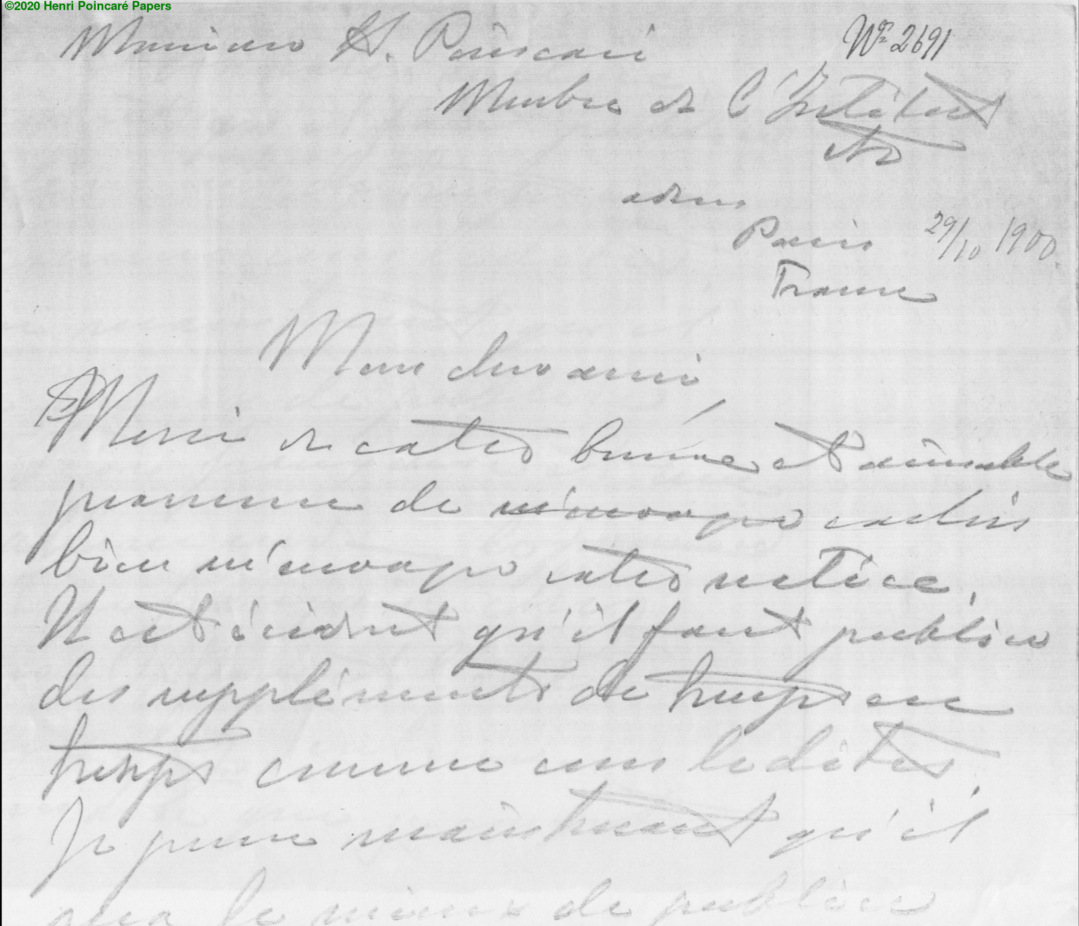 ©2020 Henri Poincaré Papers
Monsieur H. Poincaré
No 2691
Membre de l'Institut
etc
adress
Paris
29/10 1900.
France
Mon cher ami
Merci de cette bonne et aimable
promesse de
bien m'envoyer cette notice.
Il est évident qu'il faut publier
des suppléments de temps en
temps comme vous le dites
Je pense maintenant qu'il
sera le mieux de publier